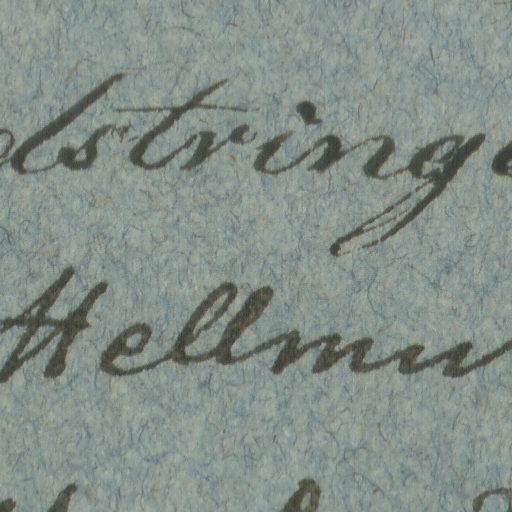 dstringe
Hellmu